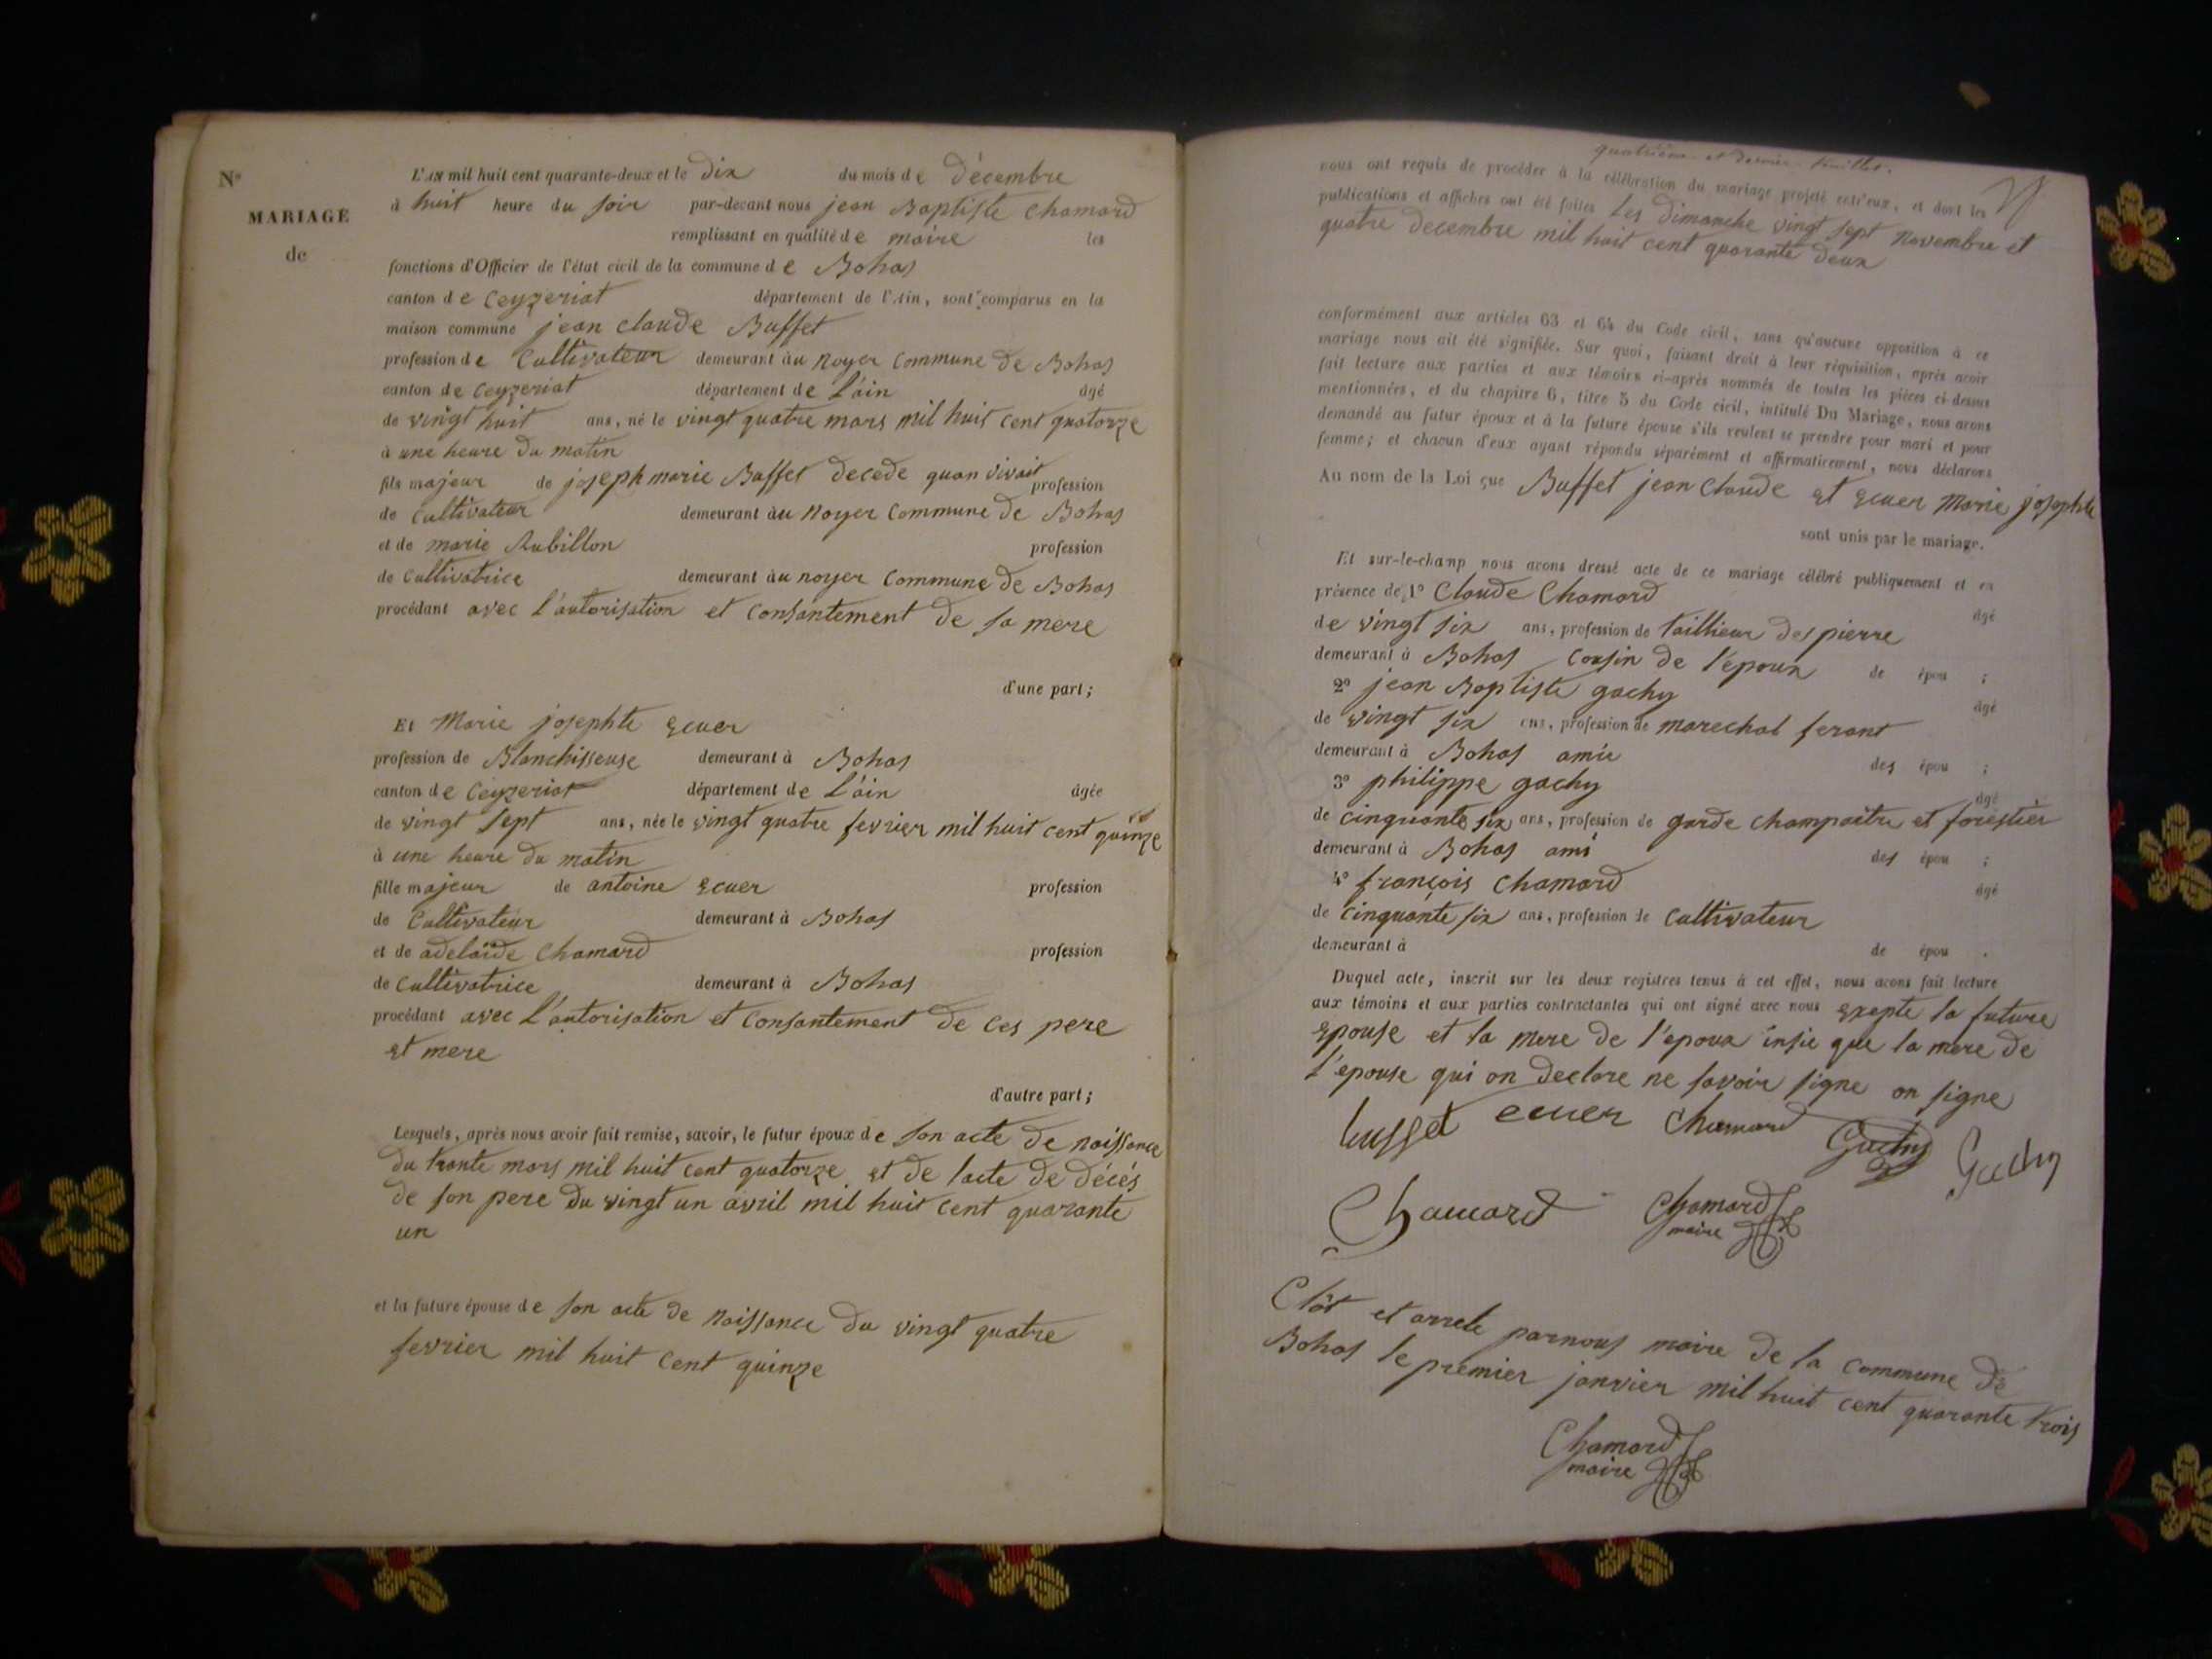 N°
MARIAGE
de
L'AN mil huit cent quarante-deux et le dix du mois de décembre
à huit heure du soir par-devant nous jean Baptiste chamard
remplissant en qualité de maire les
fonctions d'Officier de l'état civil de la commune de Bohas
canton de Ceyzeriat département de l'Ain, sont comparus en la
maison commune jean claude Buffet
profession de Cultivateur demeurant àu noyer Commune de Bohas
canton de Ceyzeriat département de L'ain âgé
de vingt huit ans, né le vingt quatre mars mil huit cent quatorze
à une heure du matin
fils majeur de joseph marie Buffet decede quan vivait profession
de Cultivateur demeurant àu noyer Commune de Bohas
et de marie Rubillon profession
de Cultivatrice demeurant àu noyer Commune de Bohas
procédant avec l'autorisation et Consantement de sa mere
d'une part;
Et Marie josephte Ecuer
profession de Blanchisseuse demeurant à Bohas
canton de Ceyzeriat département de L'ain âgée
de vingt sept ans, née le vingt quatre fevrier mil huit cent quinze
à une heure du matin
fille majeur de antoine Ecuer profession
de Cultivateur demeurant à Bohas
et de adelaïde Chamard profession
de Cultivatrice demeurant à Bohas
procédant avec L'autorisation et Consantement de ces pere
et mere
d'autre part;
Lesquels, après nous avoir fait remise, savoir, le futur époux de son acte de naissance
du trante mars mil huit cent quatorze et de l'acte de décés
de son pere du vingt un avril mil huit cent quarante
un
et la future épouse de son acte de naissance du vingt quatre
fevrier mil huit cent quinze
quatrième et dernier feuillet.
nous ont requis de procéder à la célébration du mariage projeté entr'eux, et dont les
publications et affiches ont été faites les dimanche vingt sept novembre et
quatre decembre mil huit cent quarante deux
conformément aux articles 63 et 64 du Code civil, sans qu'aucune opposition à ce
mariage nous ait été signifiée. Sur quoi, faisant droit à leur réquisition, après avoir
fait lecture aux parties et aux témoins ci-après nommés de toutes les pièces ci-dessus
mentionnées, et du chapitre 6, titre 5 du Code civil, intitulé Du Mariage, nous avons
demandé au futur époux et à la future épouse s'ils veulent se prendre pour mari et pour
femme; et chacun d'eux ayant répondu séparément et affirmativement, nous déclarons
Au nom de la Loi que Buffet jean Claude et Ecuer Marie josephte
sont unis par le mariage.
Et sur-le-champ nous avons dressé acte de ce mariage célébré publiquement et en
présence de 1° Claude Chamard âgé
de vingt six ans, profession de taillieur des pierre
demeurant à Bohas cousin de l'epoux de épou ;
2° jean Baptiste gachy âgé
de vingt six ans, profession de marechal ferant
demeurant à Bohas amie des épou ;
3° philippe gachy âgé
de cinquante six ans, profession de garde champaitre et forestier
demeurant à Bohas ami des épou ;
4° françois Chamard âgé
de cinquante six ans, profession de Cultivateur
demeurant à de épou .
Duquel acte, inscrit sur les deux registres tenus à cet effet, nous avons fait lecture
aux témoins et aux parties contractantes qui ont signé avec nous Exepte la future
Epouse et la mere de l'epoux insie que la mere de
l'epouse qui on declare ne savoir signe on signe
buffet ecuer Chamard Gachy Gachy
Chamard Chamard
maire
Clôt et arrete parnous maire de la commune de
Bohas le premier janvier mil huit cent quarante trois
Chamard
maire